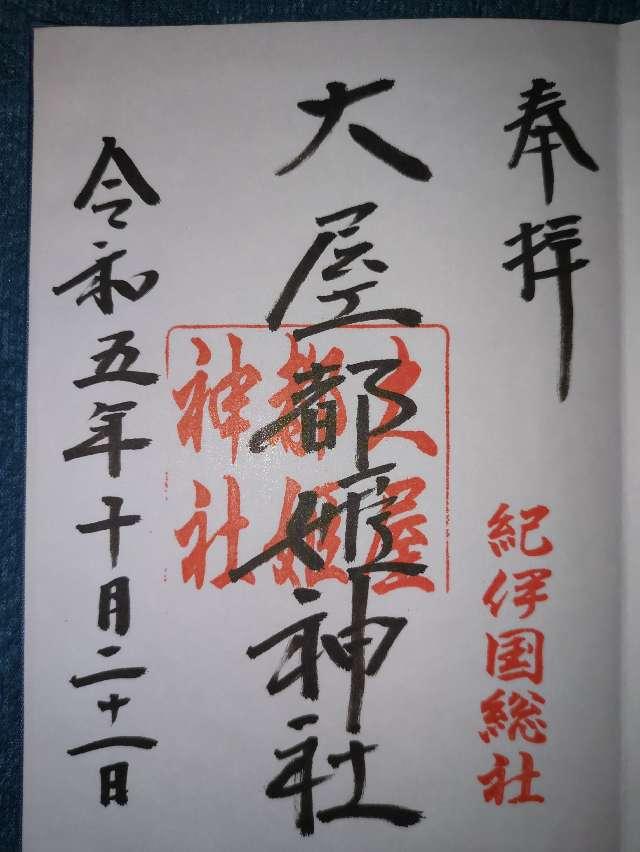 奉拝
紀伊国総社
大屋都姫神社
大屋
都姫
神社
令和五年十月二十一日